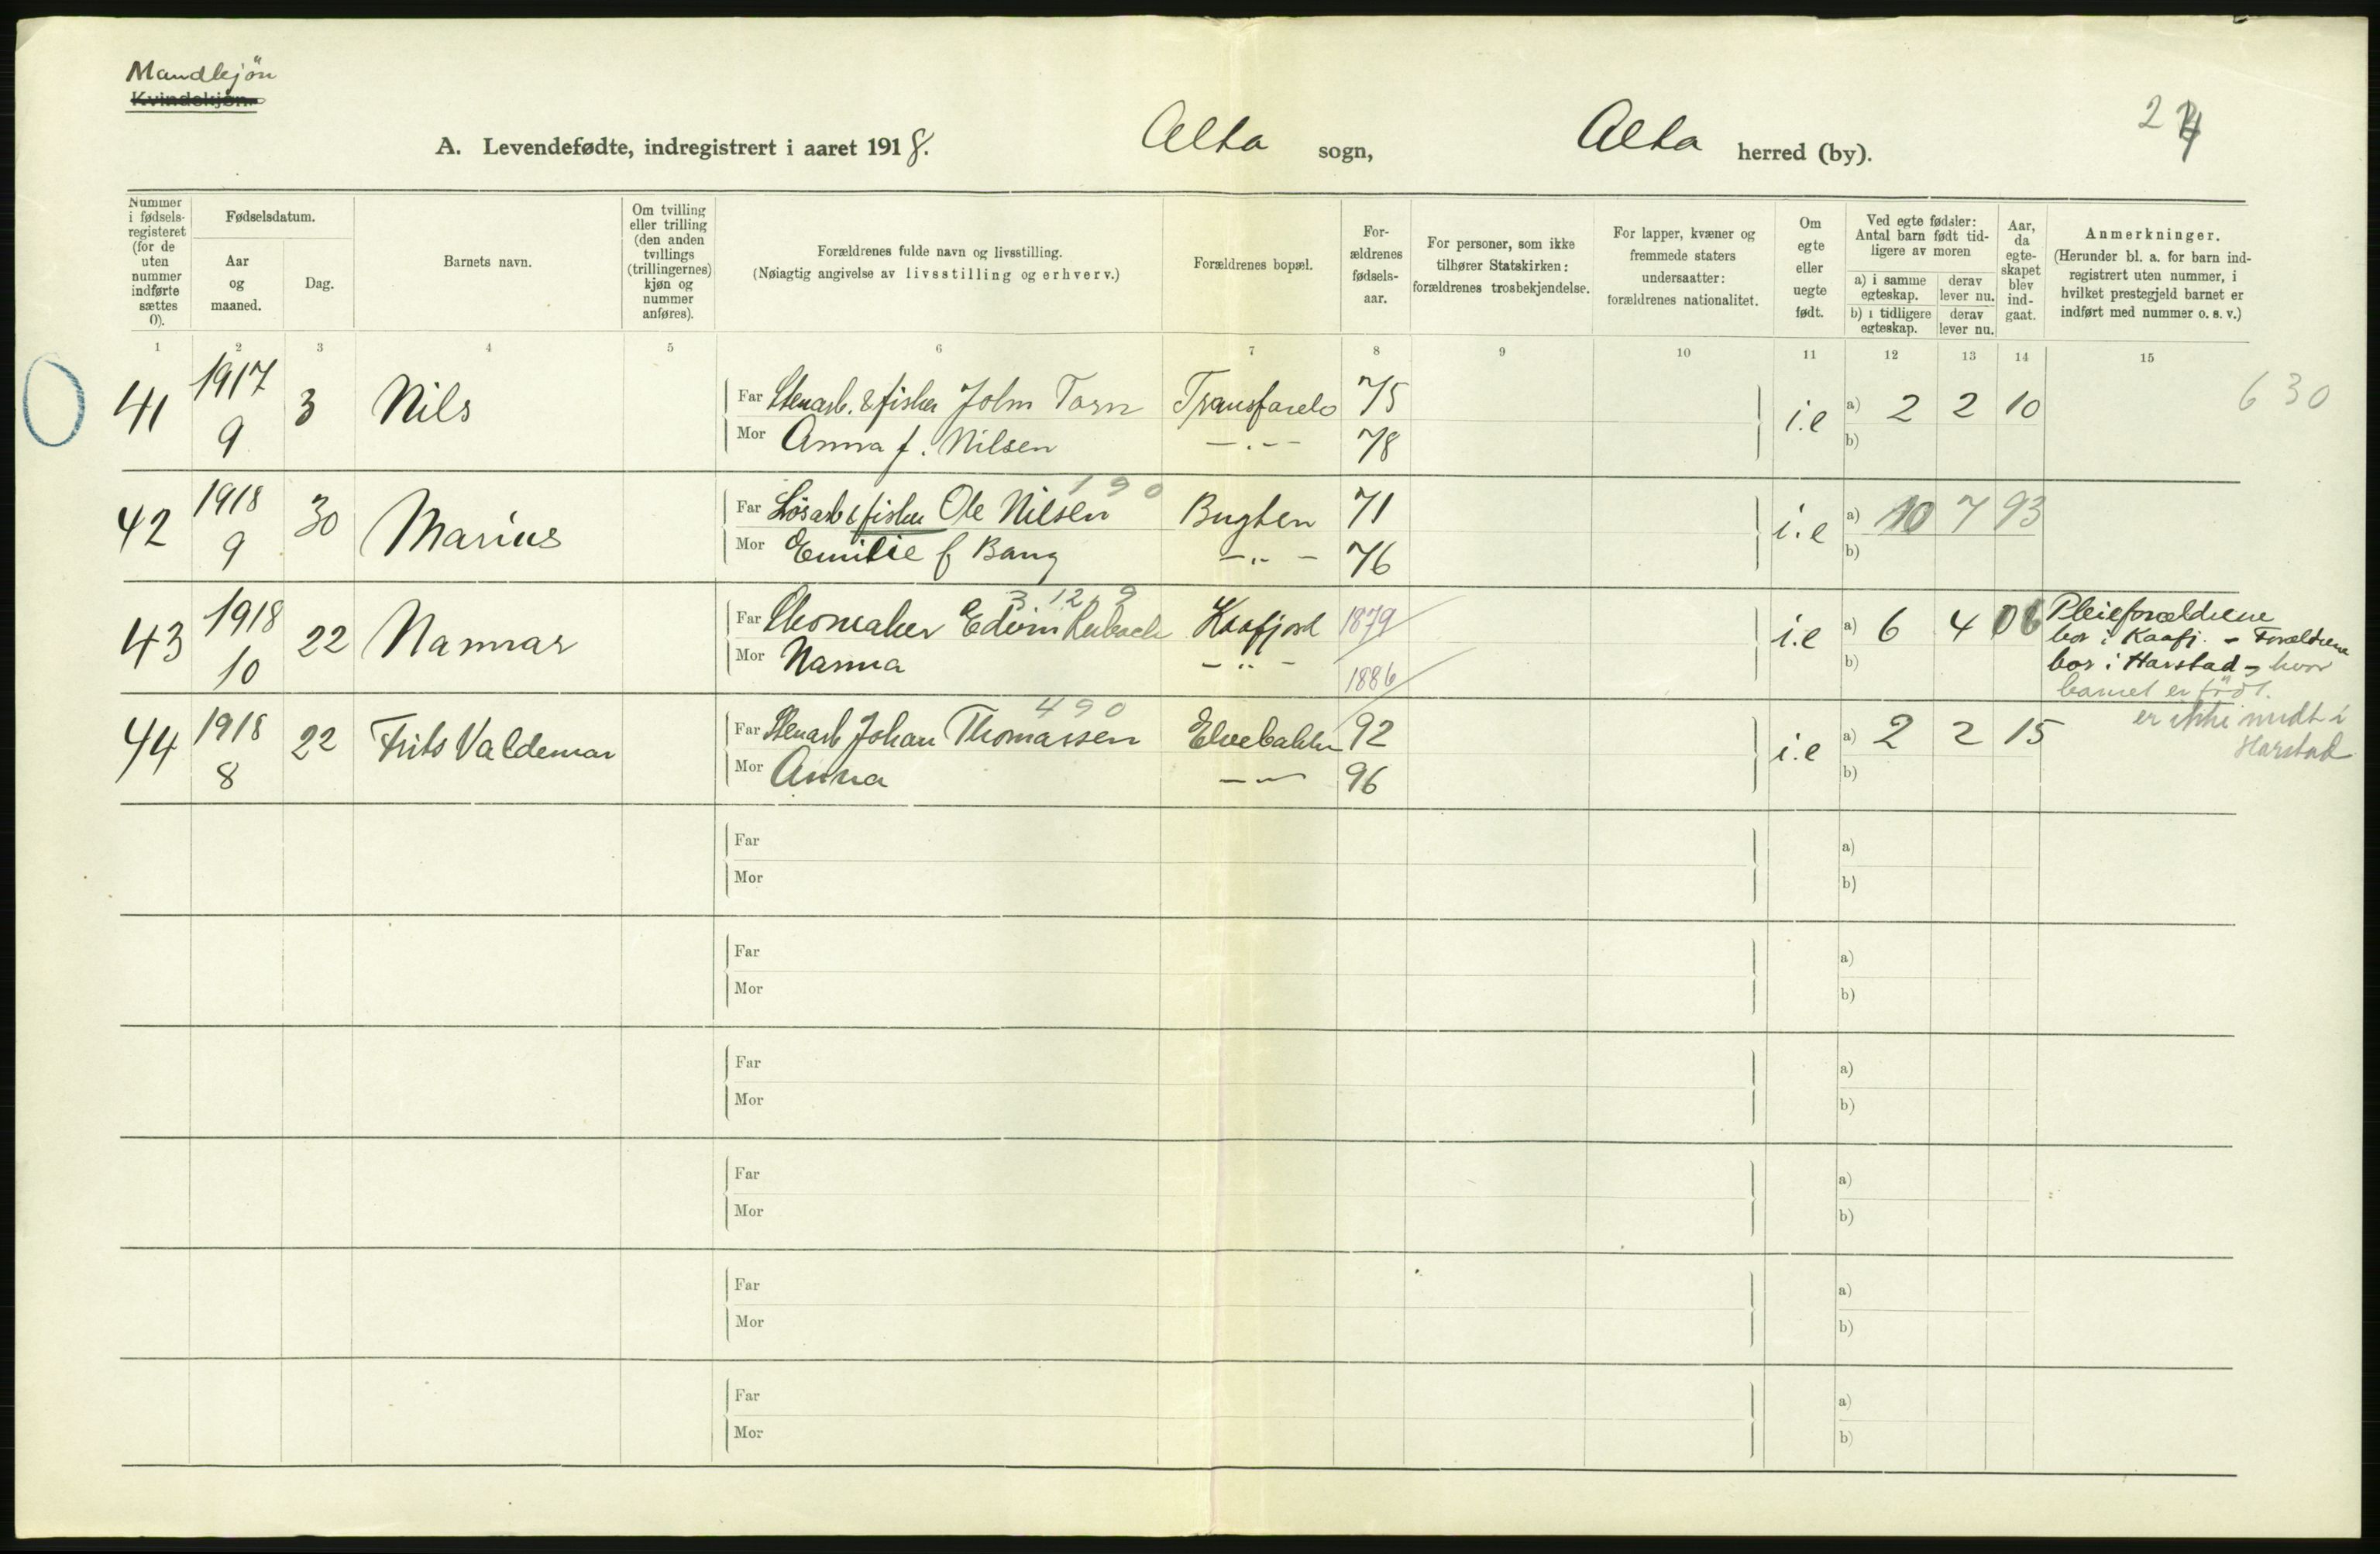 Mandkjön
Kvindekjøn.
A. Levendefødte, indregistrert i aaret 1918. Alta sogn, Alta herred (by).
24
Nummer i fødselsregisteret (for de uten nummer indførte sættes 0).
Fødselsdatum.
Aar og maaned.
Dag.
Barnets navn.
Om tvilling eller trilling (den anden tvillings (trillingernes) kjøn og nummer anføres).
Forældrenes fulde navn og livsstilling.
(Nøiagtig angivelse av livsstilling og erhverv.)
Forældrenes bopæl.
Forældrenes fødselsaar.
For personer, som ikke tilhører Statskirken: forældrenes trosbekjendelse.
For lapper, kvæner og fremmede staters undersaatter: forældrenes nationalitet.
Om egte eller uegte født.
Ved egte fødsler: Antal barn født tidligere av moren
a) i samme egteskap. derav lever nu.
b) i tidligere egteskap. derav lever nu.
Aar, da egteskapet blev indgaat.
Anmerkninger.
(Herunder bl. a. for barn indregistrert uten nummer, i hvilket prestegjeld barnet er indført med nummer o. s. v.)
1 2 3 4 5 6 7 8 9 10 11 12 13 14 15
0 41 1917 9 3 Nils Far Stenarb. & fisker John Torn 75 i.e a) 2 2 10 630
Mor Anna f. Nilsen —.— 78 b)
190
42 1918 9 30 Marius Far Lösarb & fisker Ole Nilsen Bugten 71 i.e a) 10 7 93
Mor Emilie f Bang —„— 76 b)
43 1918 10 22 Nannar Far Skomaker Edvin Kaafjord 1879 i.e a) 6 4 06 Pleieforældrene
bor i Kaafj. - Forældrene
Mor Nanna —„— 1886 b) bor i Harstad - hvor
barnet er født.
490
er ikke medt i
Harstad
44 1918 8 22 Frits Valdemar Far Stenarb Johan Thomassen Elvebakken 92 i.e a) 2 2 15
Mor Anna —„— 96 b)
Far a)
Mor b)
Far a)
Mor b)
Far a)
Mor b)
Far a)
Mor b)
Far a)
Mor b)
Far a)
Mor b)